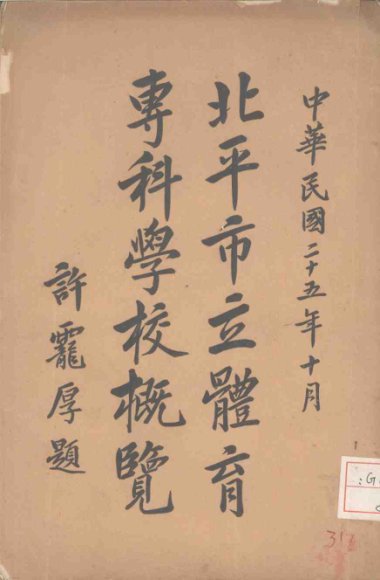 中華民國二十五年十月
北平市立體育
專科學校概覽
許靇厚題
:G
317